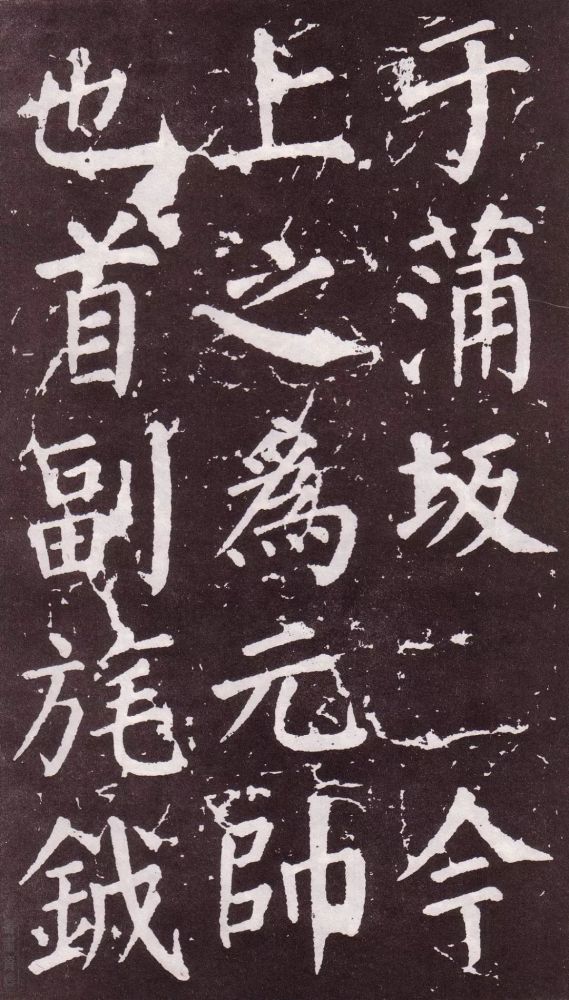 于蒲坂二今
上之為元帥
也首副旄鉞